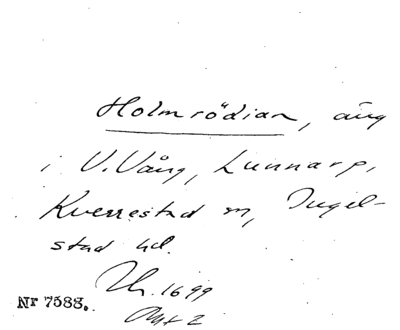 Holmrödian, äng
i V. Vång, Lunnarp,
Kverrestad sn, Ingel-
stad hd.
1699
Nr 7588.
Akt 2